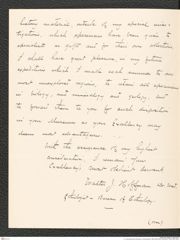 history material, outside of my special inves-
tigations, which specimens have been given to
specialists as gifts and for their own collections,
I shall have great pleasure, in my future
expeditions which I make each summer to our
most inaccessible regions, to obtain all specimens
in botany and mineralogy and geology, and
to forward them to you for such disposition
in your Museums as your Excellency may
deem most advantageous.
With the assurance of my highest
consideration, I remain Your
Excellency's most obedient servant
Walter J. Hoffman
Ethnologist - Bureau of Ethnology